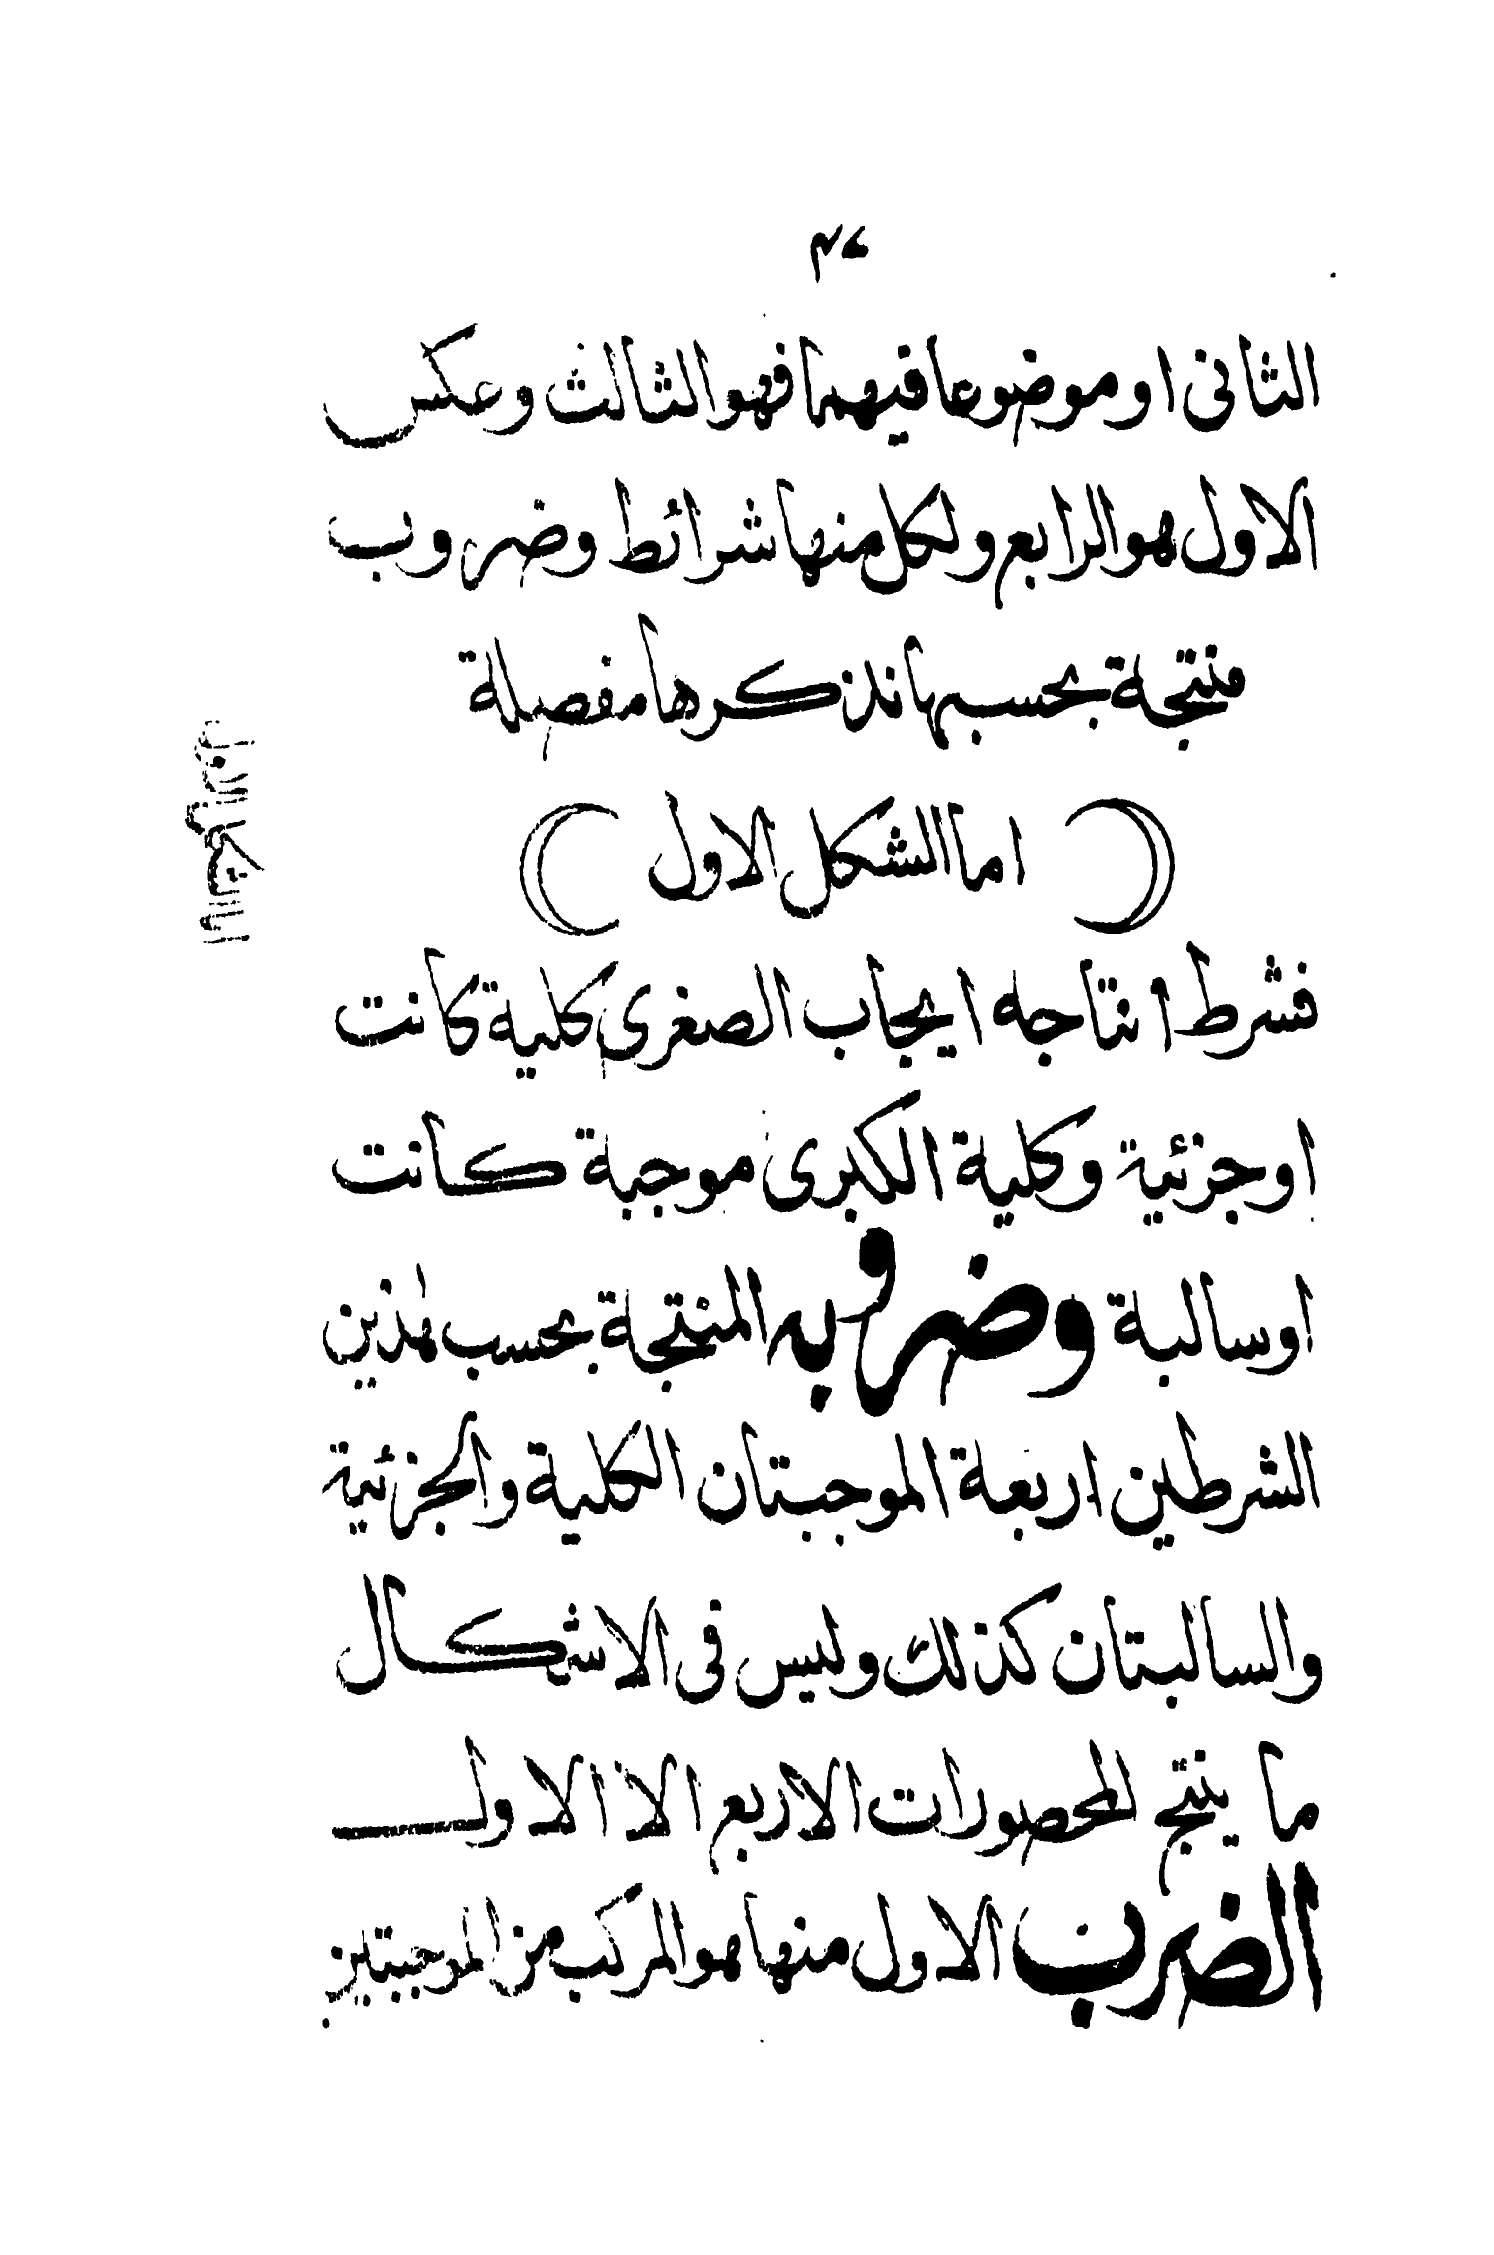 الثانى او موضوعا فيهما فهو الثالث وعكس
الاول هو الرابع ولكل منها شرائط وضروب
منتجة بحسبها نذكرها مفصلة
( اما الشكل الاول )
فشرط انتاجه ايجاب الصغرى كلية كانت
او جزئية وكلية الكبرى موجبة كانت
او سالبة وضروبه المنتجة بحسب هٰذين
الشرطين اربعة الموجبتان الكلية والجزئية
والسالبتان كذلك وليس فى الاشكال
ما ينتج المحصورات الاربع الا الاول
الضرب الاول منها هو المركب من الموجبتين
اما الشكل الاول